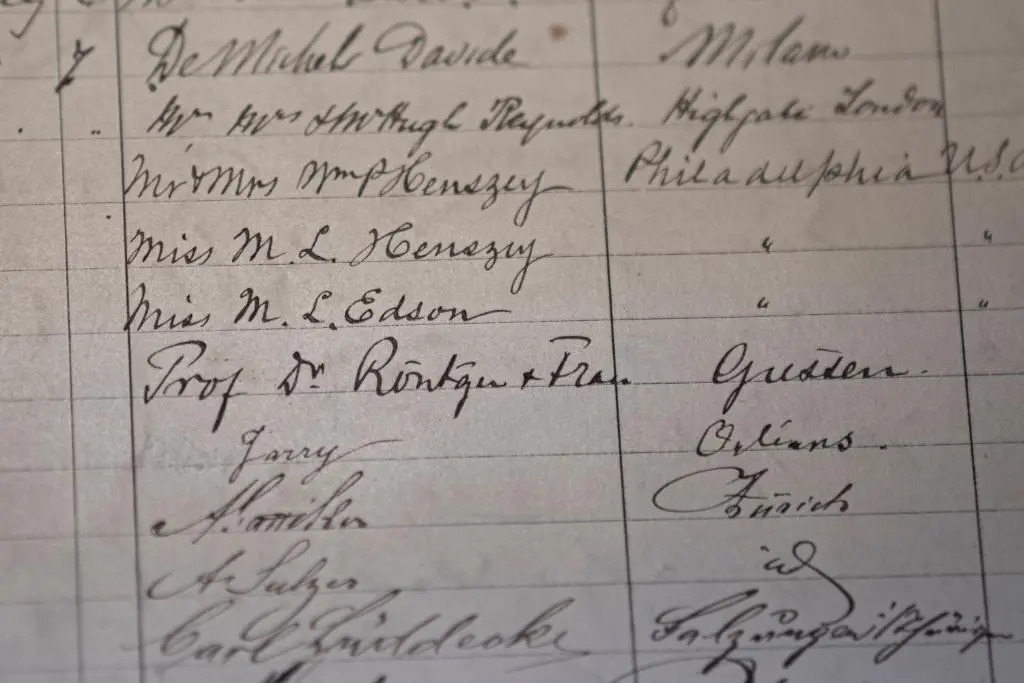 7 De Micheli Davide Milano
" Mr Mrs & Mr Hugh Reynolds. Highgate London
Mr & Mrs Wm P Henszey Philadelphia U.S.
Miss M. L. Henszey " "
Miss M. L. Edson " "
Prof Dr Röntgen & Frau Giessen.
Jarry Orléans.
Zürich
A. Sulzer id
Carl Salzungen i/Thüringen